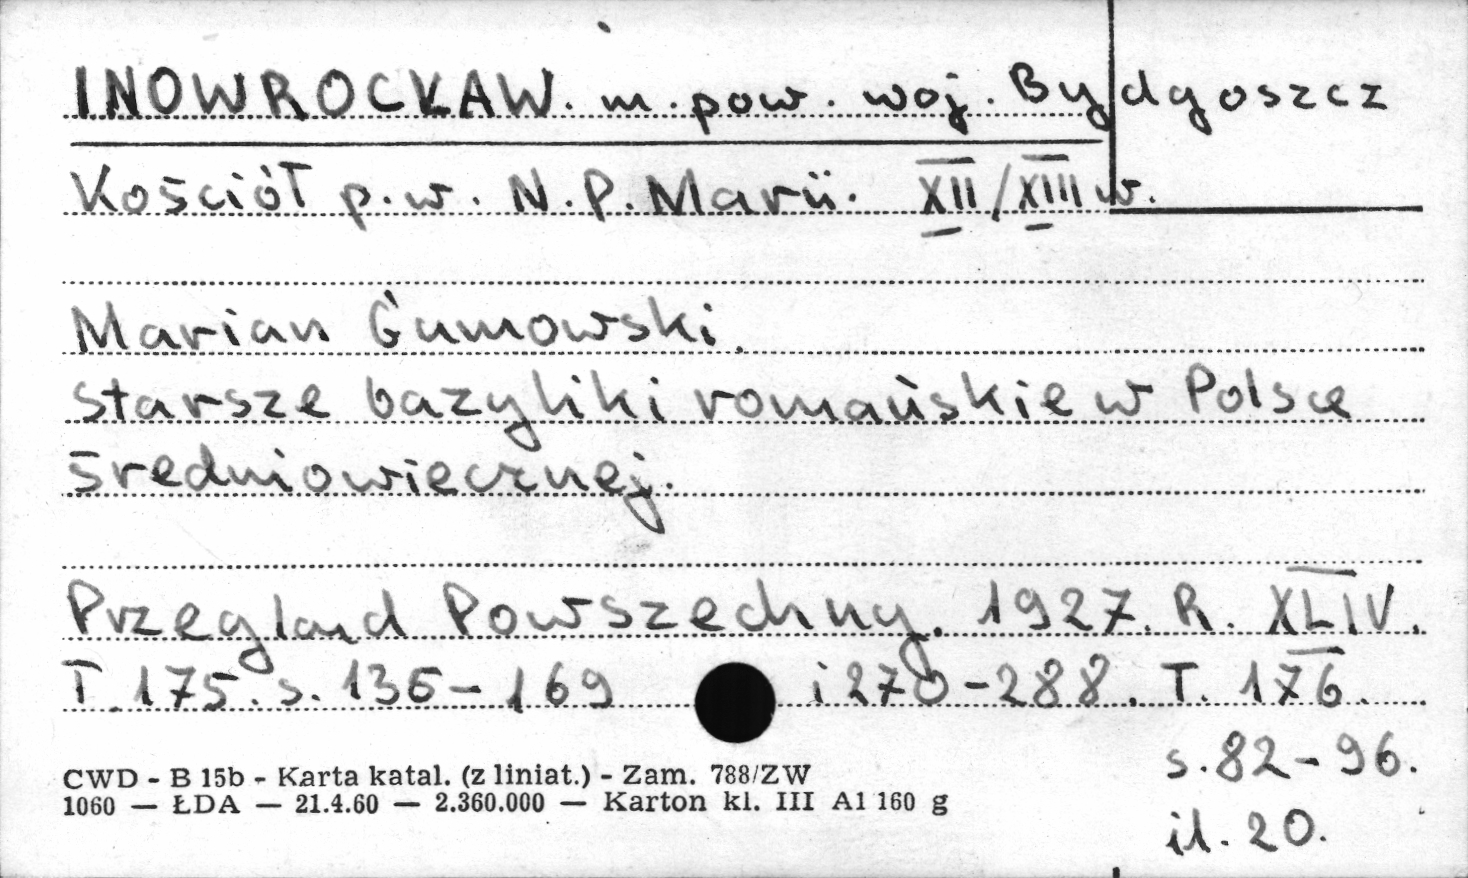 INOWROCŁAW. m. pow. woj. Bydgoszcz
Kościół p.w. N.P. Marii. XII/XIII w.
Marian Gumowski.
Starsze bazyliki romańskie w Polsce
średniowiecznej.
Przegląd Powszechny. 1927. R. XLIV.
T. 175. s. 136-169 i 270-288. T. 176.
s. 82-96.
il. 20.
CWD - B 15b - Karta katal. (z liniat.) - Zam. 788/ZW
1060 — ŁDA — 21.4.60 — 2.360.000 — Karton kl. III A1 160 g